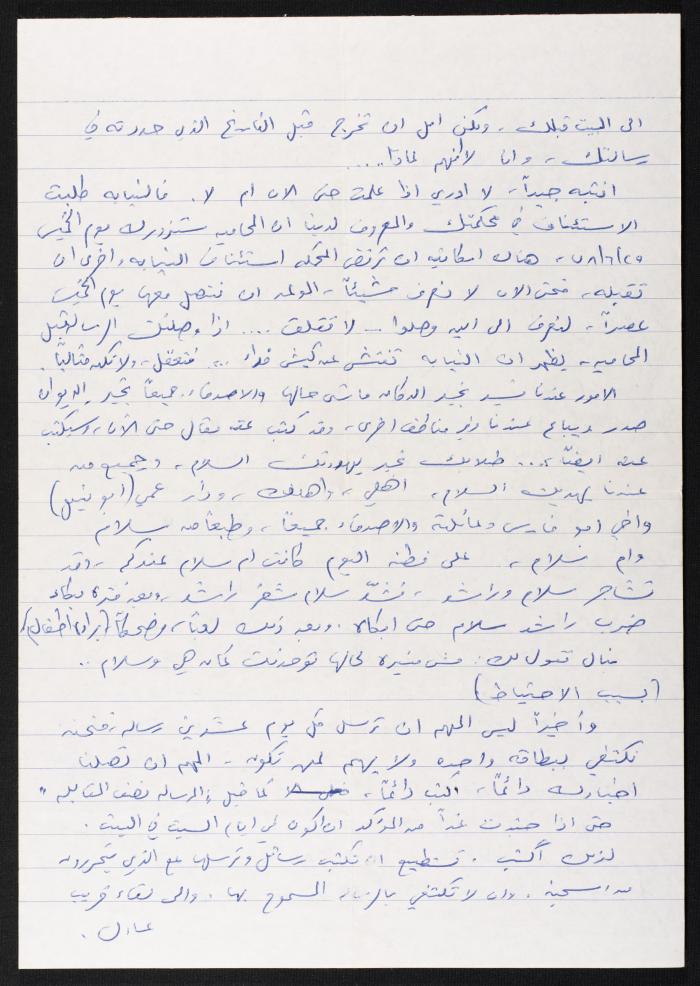 الى البيت قبلك، ولكن امل ان تخرج قبل التاريخ الذي حددته في
رسالتك، وانا لا افهم لماذا....
انتبه جيداً، لا ادري اذا علمت حتى الان ام لا. فالنيابه طلبت
الاستئناف في محكمتك والمعروف لدينا ان المحاميه ستزورك يوم الخميس
هناك امكانيه ان ترفض المحكمه استئناف النيابه واخرى ان
تقبله، فحتى الان لا نعرف شيئاً، المهم ان نتصل معها يوم الخميس
عصراً، لنعرف الى اين وصلوا... لا تقلق.... اذا وصلتك الرساله قبل
المحاميه، يظهر ان النيابه تفتش عن كبش فداء... فتعقل، ولا تكن مثالياً.
الامور عندنا بخير الدكان ماشي حالها والاصدقاء جميعاً بخير. الديوان
صدر ويباع عندنا وفي مناطق اخرى، وقد كتب عنه مقال حتى الآن، وسيكتب
عنه ايضاً،... طلابك بخير يهدونك السلام، وجميع من
عندنا يهديك السلام، اهلي، واهلك، ودار عمي (ابو نبيل)
واخي ابو فارس وعائلته والاصدقاء جميعاً، وطبعاً من سلام
وام سلام، على فطنه اليوم كانت ام سلام عندكم، وقد
تشاجر سلام وراشد، فشدّ سلام شعر راشد، وبعد فترة بكاء
ضرب راشد سلام حتى ابكاه. وبعد ذلك لعبا، وضحكا (براءة اطفال)
منال تقول لك: مش منيره لحالها توحدنت كمان هي وسلام..
(بسبب الاحتياط)
وأخيراً ليس المهم ان ترسل كل يوم عشرين رساله، فنحن
نكتفي ببطاقه واحده ولا يهم لمن تكون، المهم ان تصلنا
اخبارك دائماً، اكتب دائماً، كما قيل "الرساله نصف المقابله"
حتى اذا حدث غداً من المؤكد ان اكون لي ايام السبت في البيت.
لذلك اكتب. تستطيع ان تكتب رسائل وترسلها مع الذي يتحررون
من السجن. وان لا تكتفي بالرسائل المسموح بها. والى لقاء قريب
عادل.